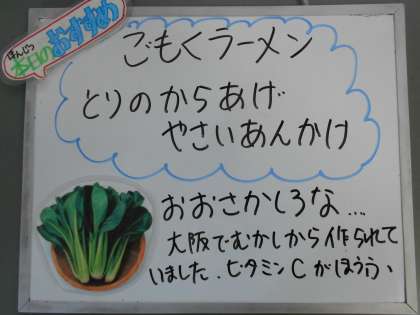 ほんじつ
本日のおすすめ
ごもくラーメン
とりのからあげ
やさいあんかけ
おおさかしろな...
大阪でむかしから作られて
いました．ビタミンCがほうふ、